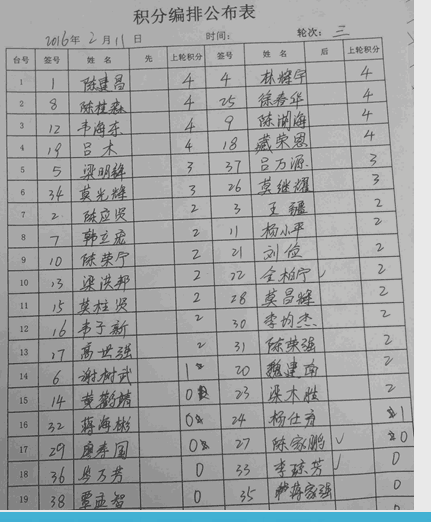 积分编排公布表
2016年 2月 11日 时间： 轮次：三
台号 签号 姓名 先 上轮积分 签号 姓名 后 上轮积分
1 1 陈建昌 4 4 林耀宇 4
2 8 陈桂森 4 25 徐春华 4
3 12 韦海东 4 9 陈湖海 4
4 19 吕木 4 18 戴荣恩 4
5 5 梁明锋 3 37 吕万源 3
6 34 莫光辉 3 26 莫继耀 3
7 2 陈应贤 2 3 王疆 2
8 7 韩立宏 2 11 杨小平 2
9 10 陈荣宁 2 21 刘俭 2
10 13 梁洪邦 2 22 全柏宁 ✓ 2
11 15 莫桂贤 2 28 莫昌辉 2
12 16 韦子新 2 30 李均杰 2
13 17 高世强 2 31 陈荣强 2
14 6 谢树武 1 20 魏建南 2
15 14 黄鹳靖 0 23 梁木胜 2
16 32 蒋海彬 0 24 杨仕育 1
17 29 廖寿国 0 27 陈家鹏 ✓ 0
18 36 岑万芳 0 33 李琼芳 ✓ 0
19 38 覃孟智 0 35 蒋家强 0